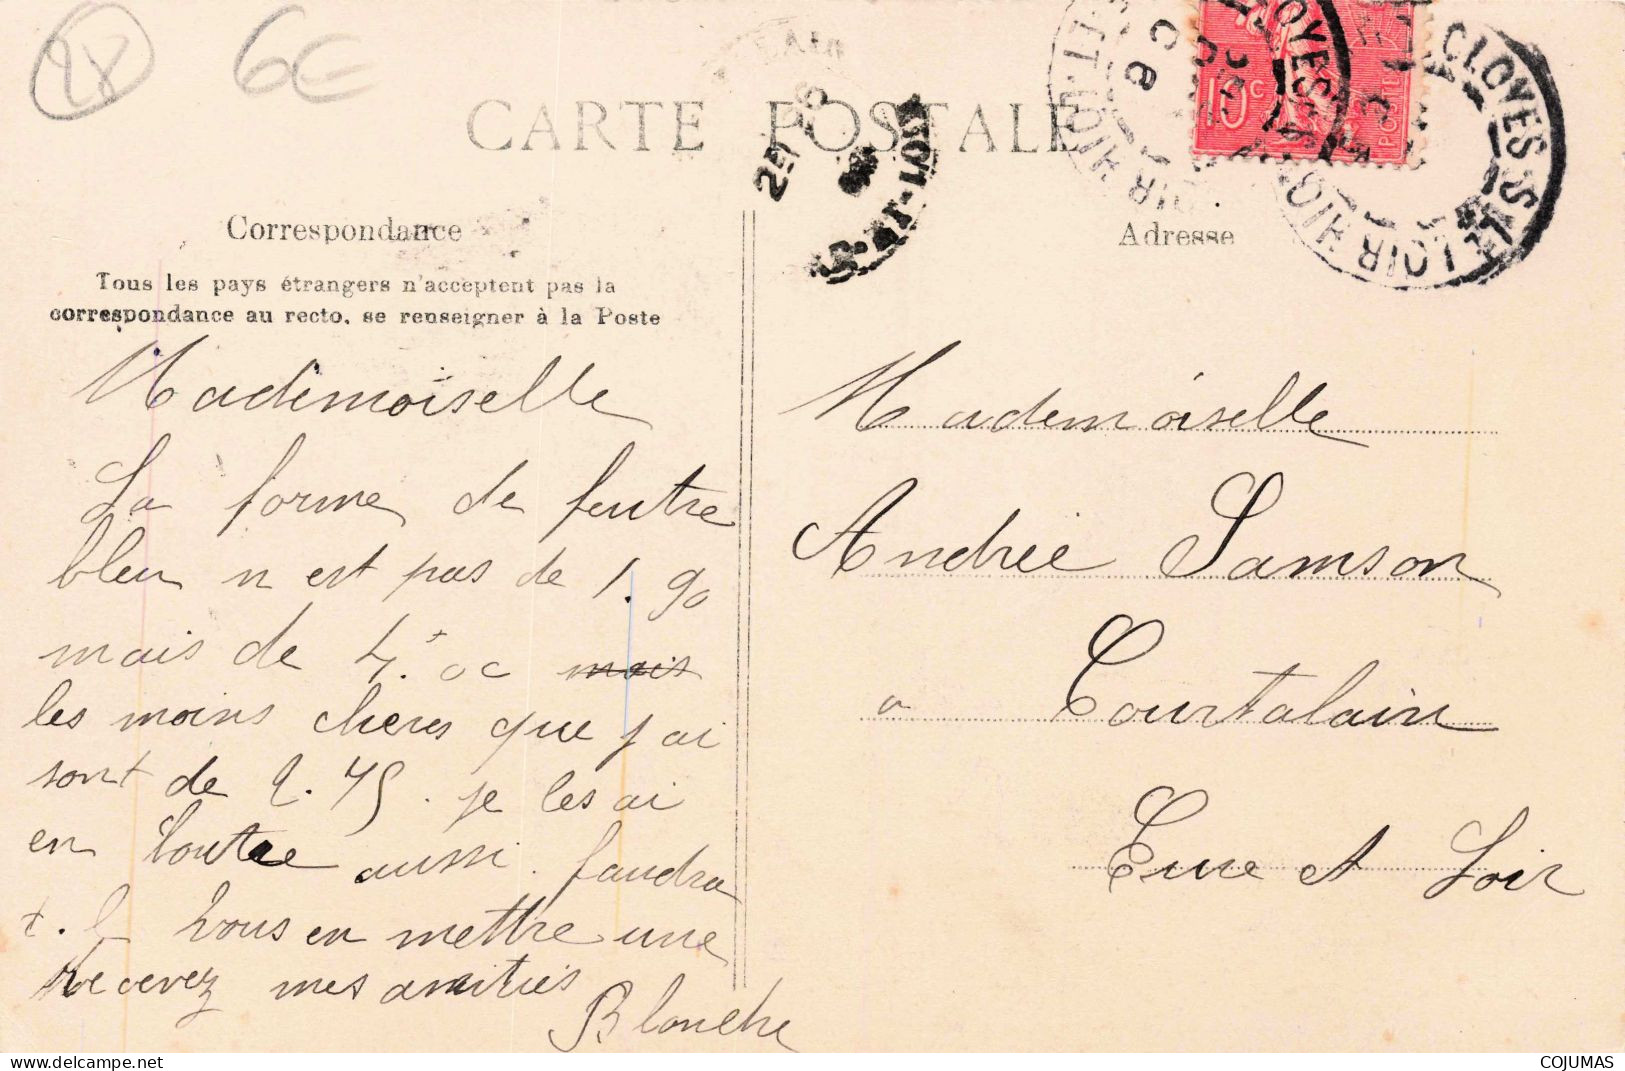 28
6€
CARTE POSTALE
10c
POSTES
CLOYES-S
LOIR
Correspondance
Adresse
Tous les pays étrangers n'acceptent pas la
correspondance au recto, se renseigner à la Poste
Mademoiselle
La forme de feutre
bleu n est pas de 1.90
mais de 4.f oc mais
les moins chères que j ai
sont de 2.75. je les ai
en loutre aussi. faudra
t. il vous en mettre une
Recevez mes amitiés
Blanche
Mademoiselle
Andrée Samson
a Courtalain
Eure et Loir
COJUMAS